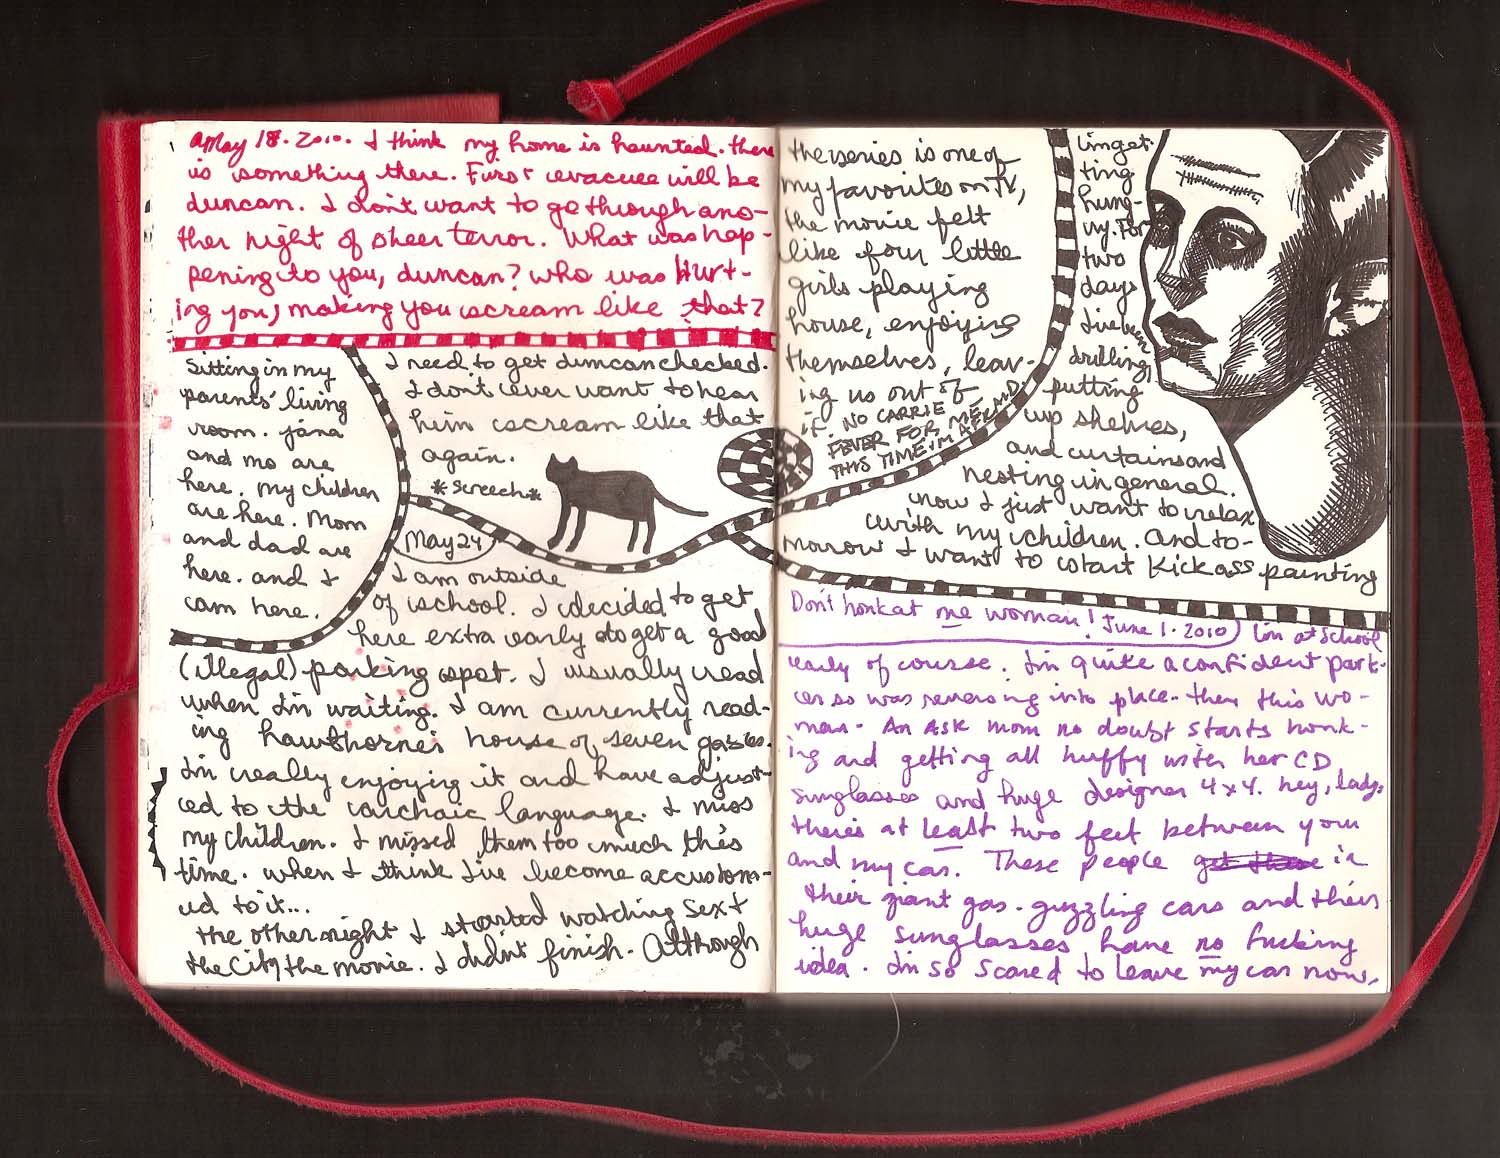 May 18. 2010. I think my home is haunted. there
is something there. First evacuee will be
duncan. I don't want to go through ano-
ther night of sheer terror. What was hap-
pening to you, duncan? who was Hurt-
ing you, making you scream like that?
Sitting in my
parents' living
room. jana
and mo are
here. My children
are here. Mom
and dad are
here. and I
am here.
I need to get duncan checked.
I don't ever want to hear
him scream like that
again.
*screech*
May 24
I am outside
of school. I decided to get
here extra early to get a good
(illegal) parking spot. I usually read
when I'm waiting. I am currently read-
ing hawthorne's house of seven gables.
I'm really enjoying it and have adjust-
ed to the archaic language. I miss
my children. I missed them too much this
time. when I think I've become accustom-
ed to it...
the other night I started watching Sex &
the City the movie. I didn't finish. Although
the series is one of
my favorites on TV,
the movie felt
like four little
girls playing
house, enjoying
themselves, leav-
ing us out of
it. NO CARRIE
FEVER FOR ME
THIS TIME. I'M
I'm get-
ting
hung-
ry. For
two
days
I've been
drilling,
putting
up shelves,
and curtains and
nesting in general.
now I just want to relax
with my children. and to-
morrow I want to start Kickass painting
Don't honk at me woman! June 1. 2010) I'm at School
early of course. I'm quite a confident park-
er so was reversing into place. then this wo-
man. An ASK mom no doubt starts honk-
ing and getting all huffy with her CD
sunglasses and huge designer 4x4. hey, lady,
there's at least two feet between you
and my car. These people in
their giant gas-guzzling cars and their
huge sunglasses have no fucking
idea. I'm so scared to leave my car now,